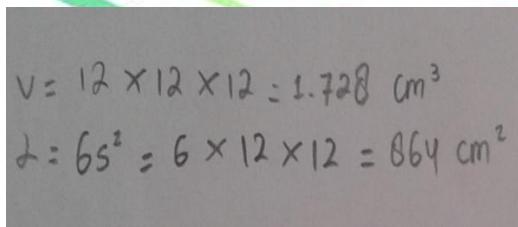 V = 12 × 12 × 12 = 1.728 cm³
L = 6s² = 6 × 12 × 12 = 864 cm²